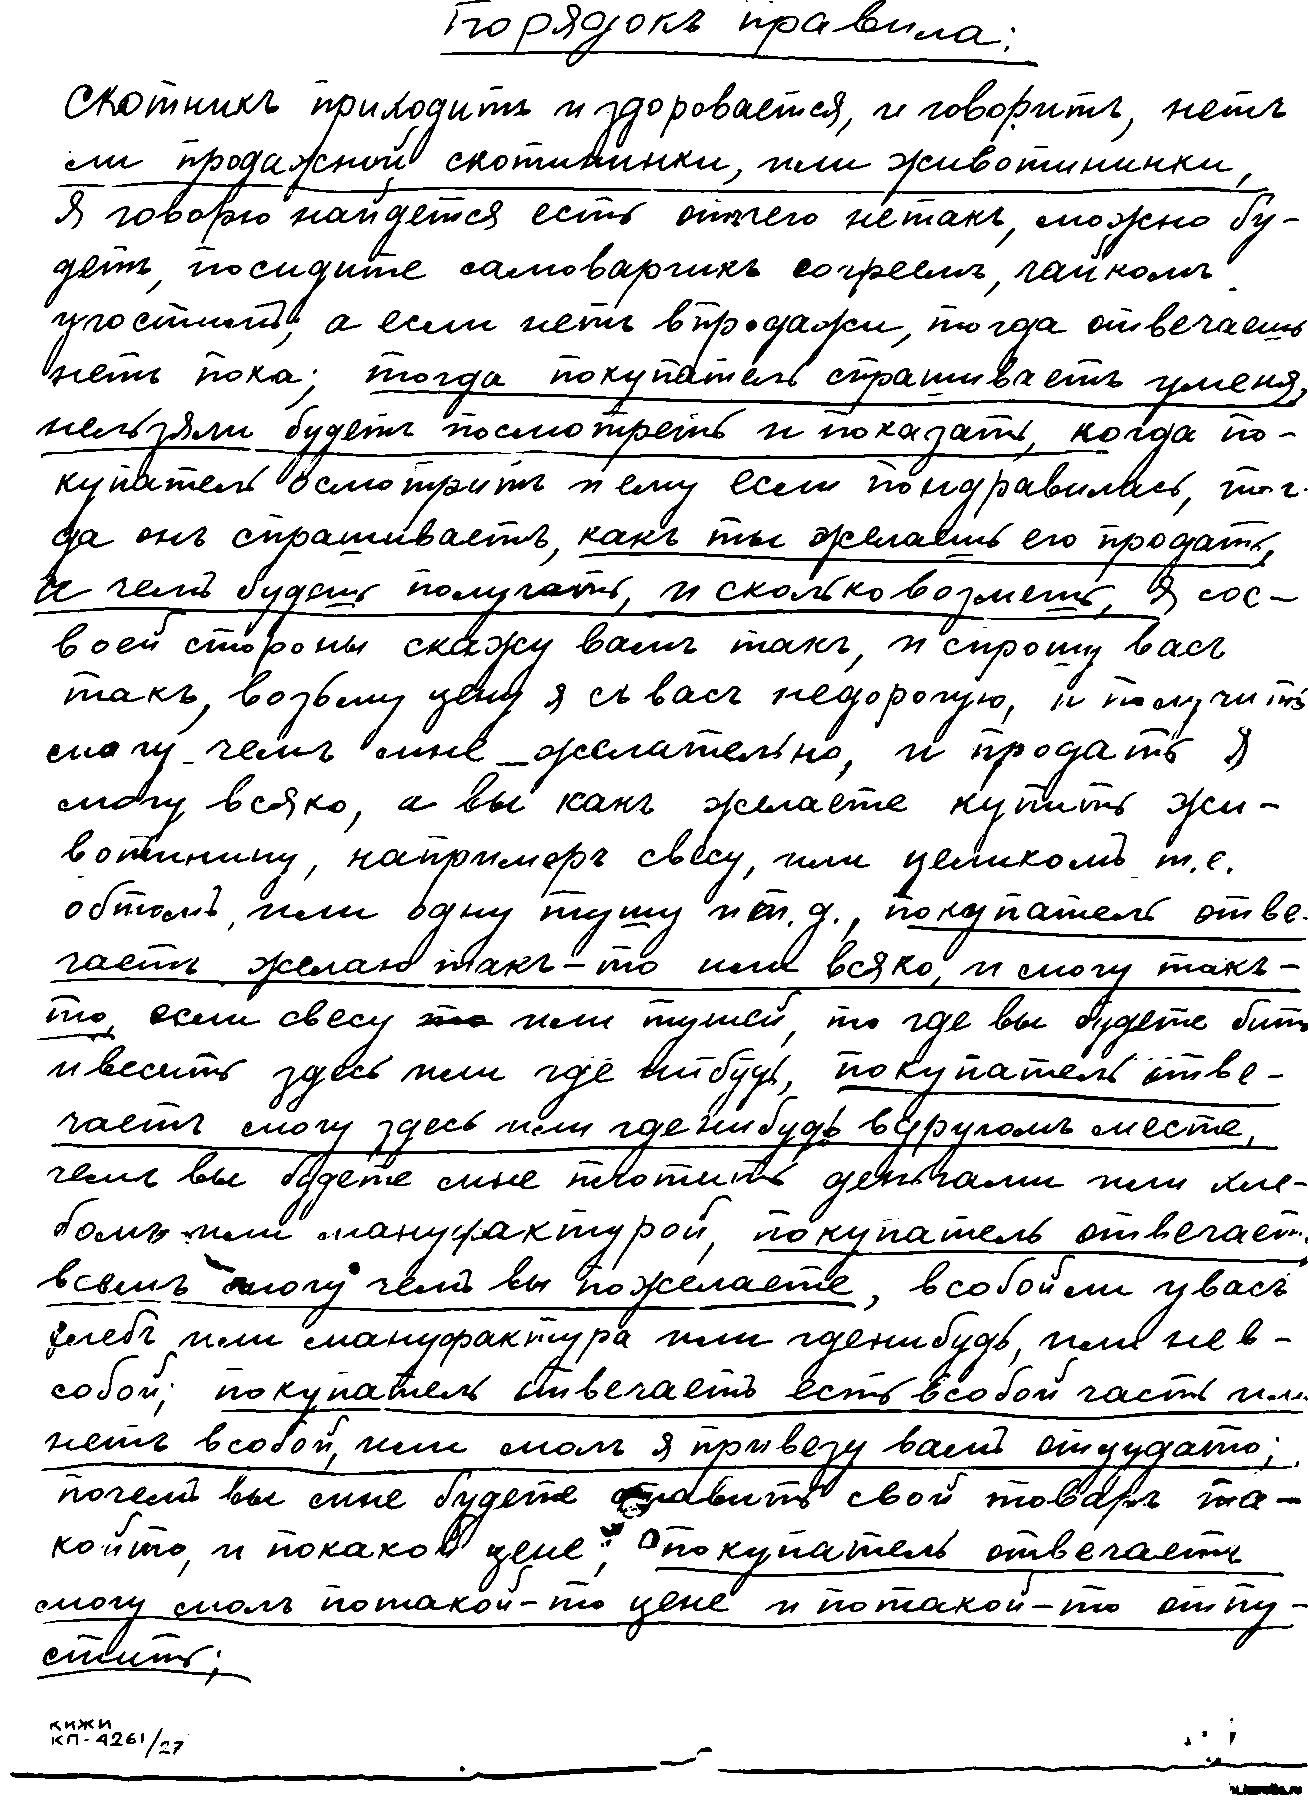 Порядокъ правила:
Скотникъ приходитъ и здоровается, и говоритъ, нетъ
ли продажной скотининки, или животининки,
Я говорю найдется есть отчего нетакъ, можно бу-
детъ, посидите самоварчикъ согреемъ, чайкомъ
угостимъ; а если нетъ впродажи, тогда отвечаешь
нетъ пока; тогда покупатель спрашиваетъ уменя,
нельзяли будетъ посмотреть и показать, когда по-
купатель осмотритъ и ему если пондравилась, тог-
да онъ спрашиваетъ, какъ ты желаешь его продать,
и чемъ будешь получать, и сколько возмешь, Я сос-
воей стороны скажу вамъ такъ, и спрошу васъ
такъ, возьму цену я съ васъ недорогую, и получить
смогу чемъ мне желательно, и продать Я
могу всяко, а вы какъ желаете купить жи-
вотинину, напримеръ свесу, или целикомъ т.е.
обтомъ, или одну тушу и т.д., покупатель отве-
чаетъ желаю такъ-то или всяко, и смогу такъ-
то, если свесу то или тушей, то где вы будете бить
ивесить здесь или где нибудь, покупатель отве-
чаетъ смогу здесь или гденибудь вдругомъ месте,
чемъ вы будете мне плотить деньгами или хле-
бомъ или мануфактурой, покупатель отвечаетъ
всемъ смогу чемъ вы пожелаете, всобойли увасъ
хлебъ или мануфактура или гденибудь, или не в-
собой; покупатель отвечаетъ есть всобой часть или
нетъ всобой, или молъ я привезу вамъ отцудато;
почемъ вы мне будете ставить свой товаръ та-
който, и покакой цене; покупатель отвечаетъ
смогу молъ потакой-то цене и потакой-то отпу-
стить;
КИЖИ
КП-4261/27